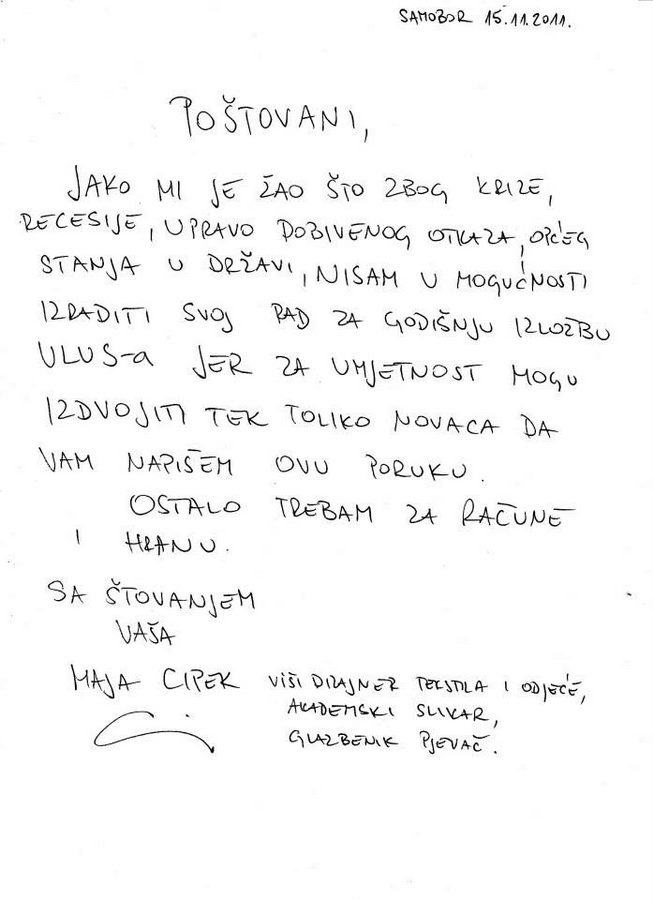 SAMOBOR 15.11.2011.
POŠTOVANI,
JAKO MI JE ŽAO ŠTO ZBOG KRIZE,
RECESIJE, UPRAVO DOBIVENOG OTKAZA, OPĆEG
STANJA U DRŽAVI, NISAM U MOGUĆNOSTI
IZRADITI SVOJ RAD ZA GODIŠNJU IZLOŽBU
ULUS-a JER ZA UMJETNOST MOGU
IZDVOJITI TEK TOLIKO NOVACA DA
VAM NAPIŠEM OVU PORUKU.
OSTALO TREBAM ZA RAČUNE
I HRANU.
SA ŠTOVANJEM
VAŠA
MAJA CIPEK VIŠI DIZAJNER TEKSTILA I ODJEĆE,
AKADEMSKI SLIKAR,
GLAZBENIK PJEVAČ.